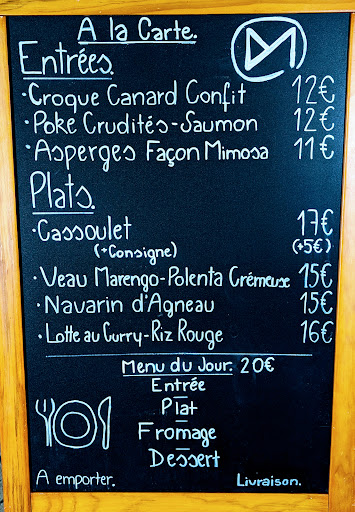 A la Carte.
Entrées.
·Croque Canard Confit 12€
·Poké Crudités-Saumon 12€
·Asperges Façon Mimosa 11€
Plats.
·Cassoulet 17€
(+Consigne) (+5€)
·Veau Marengo-Polenta Crémeuse 15€
·Navarin d'Agneau 15€
·Lotte au Curry-Riz Rouge 16€
Menu du Jour. 20€
Entrée
Plat
Fromage
Dessert
A emporter. Livraison.